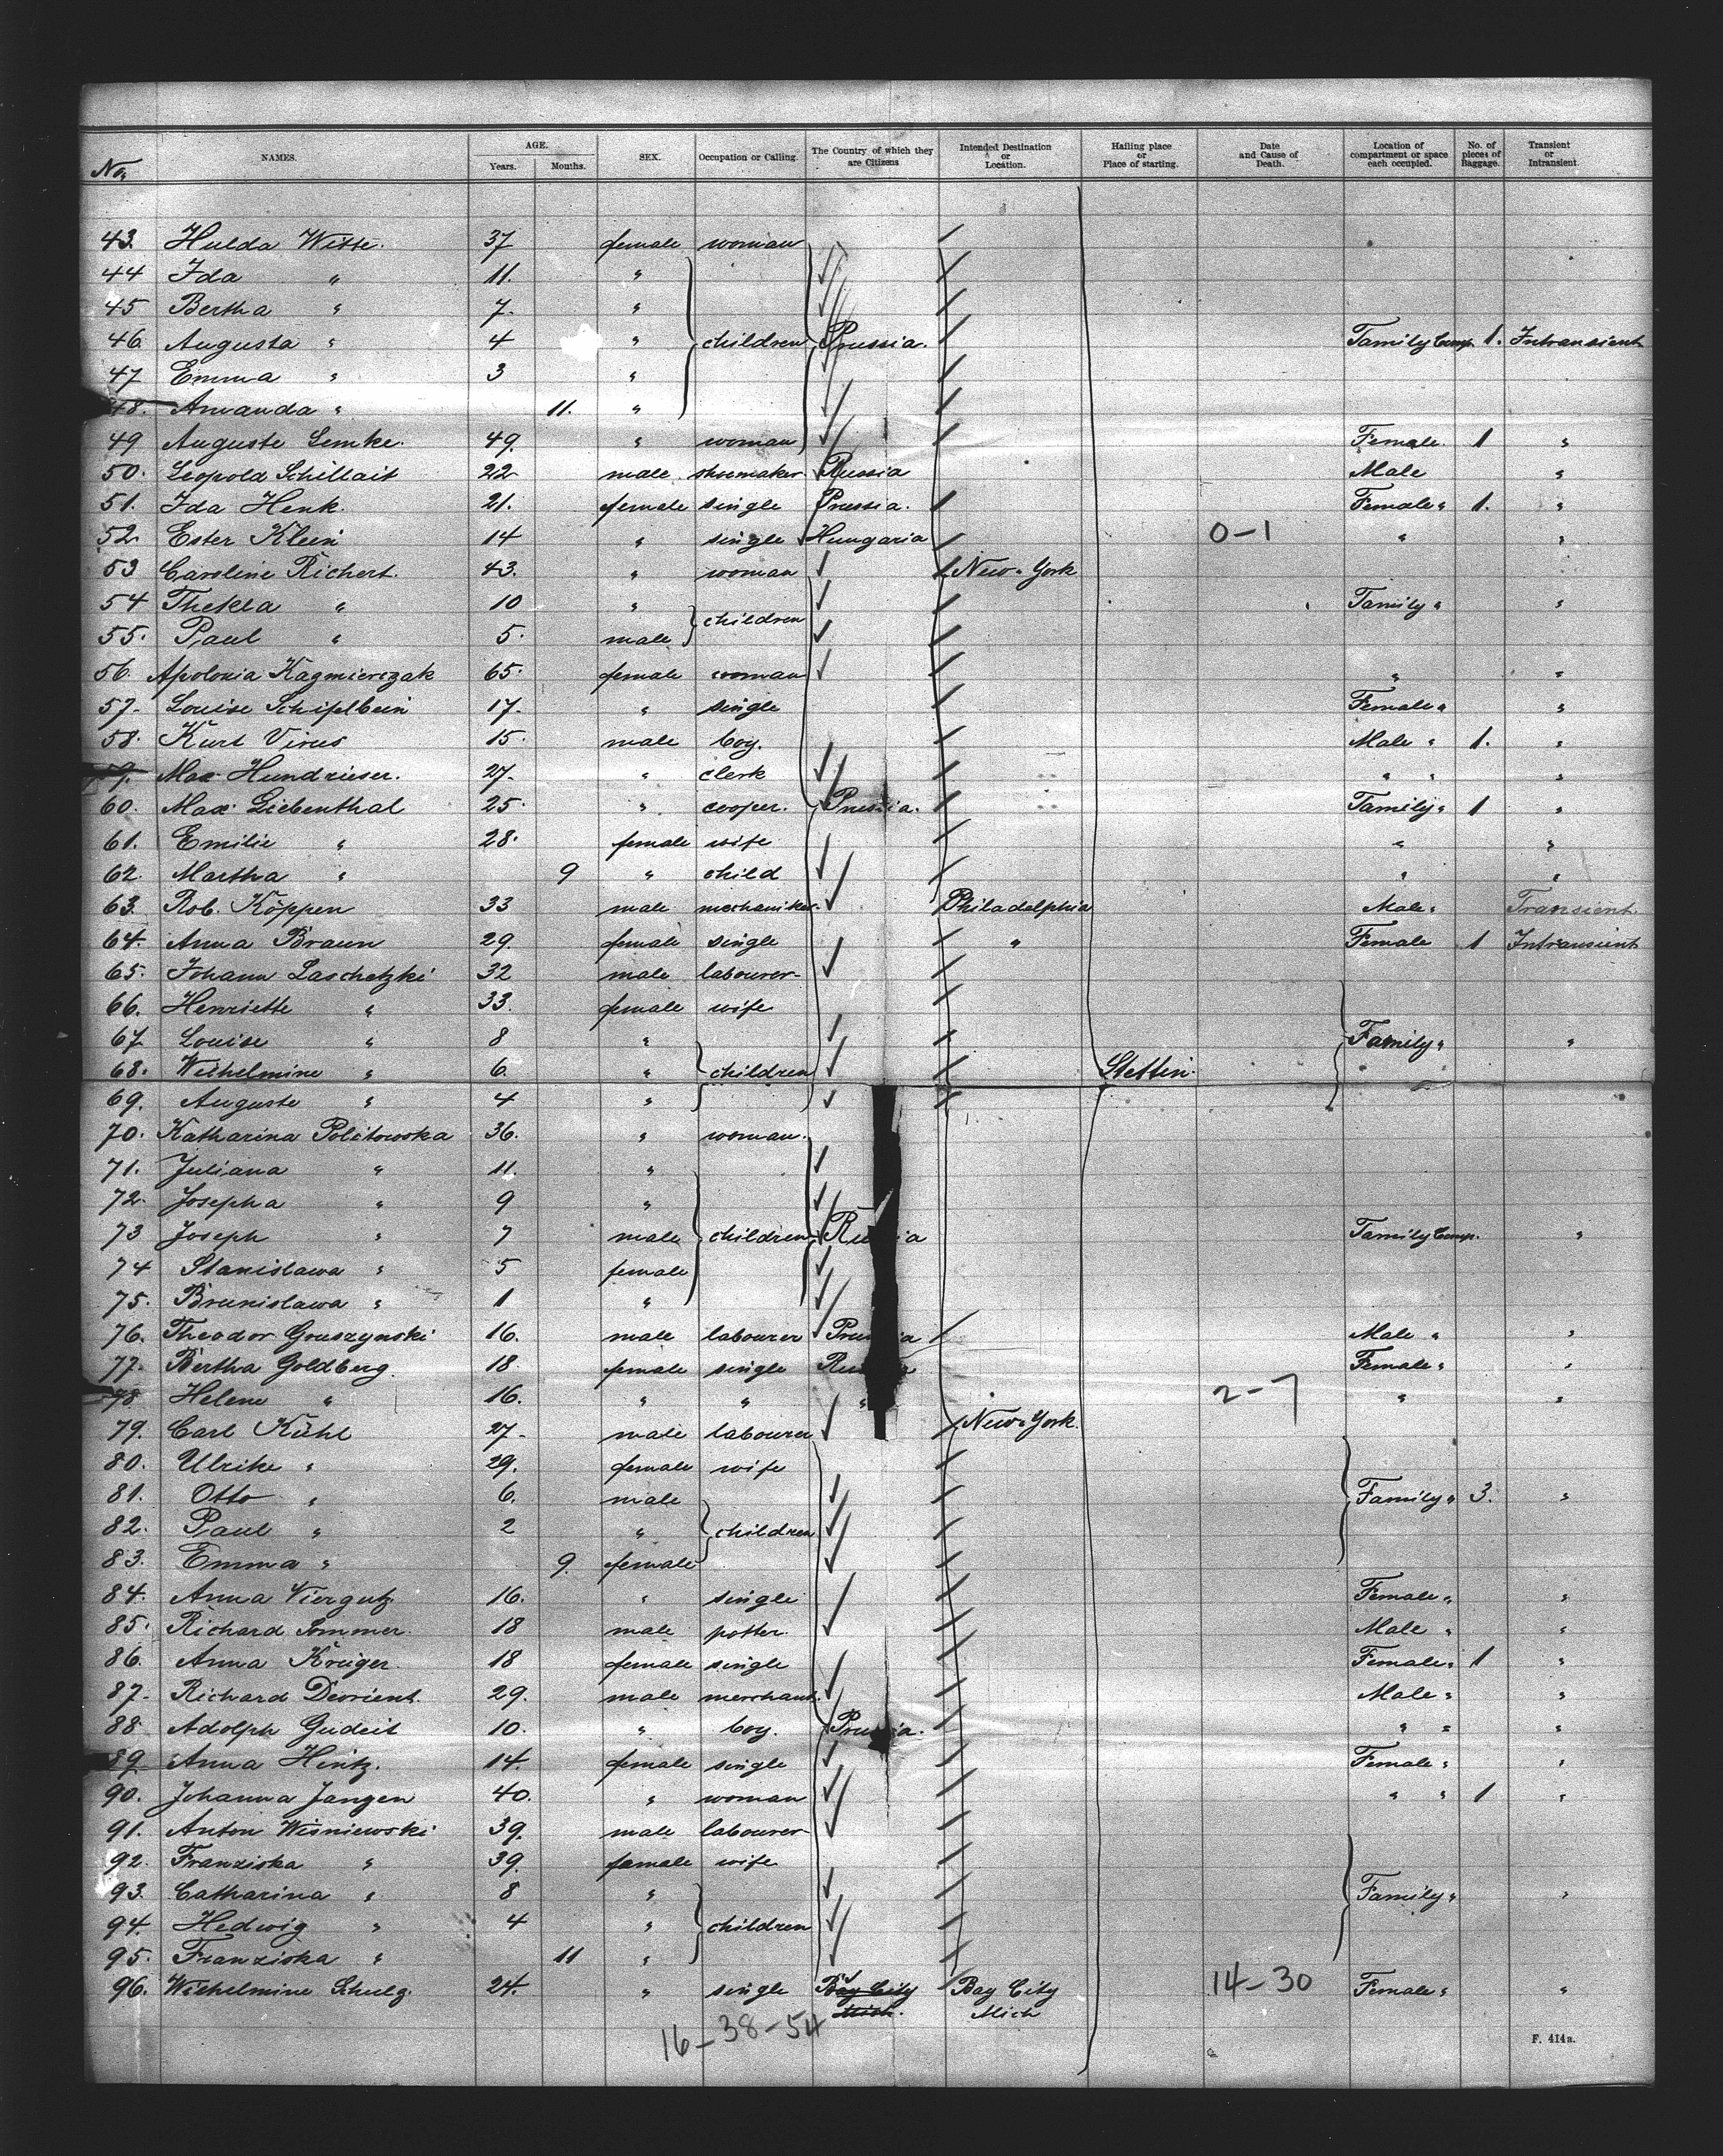 No. NAMES. AGE. Years. Months. SEX. Occupation or Calling. The Country of which they are Citizens Intended Destination or Location. Hailing place or Place of starting. Date and Cause of Death. Location of compartment or space each occupied. No. of pieces of Baggage. Transient or Intransient.
43. Hulda Witte. 37 female woman
44 Ida " 11. "
45 Bertha " 7. "
46 Augusta " 4 " children Prussia. Family Comp. 1. Intransient
47 Emma " 3 "
48. Amanda " 11. "
49 Auguste Lemke. 49. " woman Female. 1 "
50. Leopold Schillait 22 male shoemaker. Russia Male "
51. Ida Henk. 21. female single Prussia. Female " 1. "
52. Ester Klein 14 " single Hungaria 0-1 " "
53 Caroline Richert. 43. " woman New-York
54 Thekla " 10 " children Family " "
55. Paul " 5. male
56. Apolonia Kazmierczak 65. female woman " "
57. Louise Schiflbein 17. " single Female " "
58. Kurt Virus 15. male boy. Male " 1. "
59. Max Hundrieser. 27. " clerk " " "
60. Max Liebenthal 25. " cooper. Prussia. Family " 1 "
61. Emilie " 28. female wife " "
62. Martha " 9 " child " "
63. Rob. Köppen 33 male mechaniker. Philadelphia Male " Transient.
64. Anna Braun 29. female single " Female 1 Intransient
65. Johann Laschetzki 32 male labourer
66. Henriette " 33. female wife
67. Louise " 8 " Family " "
68. Wilhelmine " 6 " children Stettin.
69. Auguste " 4 "
70. Katharina Politowska 36. " woman.
71. Juliana " 11. "
72. Josepha " 9 "
73 Joseph " 7 male children Ru ia Family Comp. "
74 Stanislawa " 5 female
75. Brunislawa " 1 "
76. Theodor Gruszynski 16. male labourer Pru ia Male " "
77. Bertha Goldberg. 18. female single Ru Female " "
78 Helene " 16. " " " 2-7 " "
79. Carl Kühl 27. male labourer New-York.
80. Ulrike " 29. female wife
81. Otto " 6. male Family " 3. "
82. Paul " 2 " children
83. Emma " 9. female
84. Anna Viergutz 16. " single Female " "
85. Richard Sommer. 18 male potter. Male " "
86. Anna Krüger. 18 female single Female " 1 "
87. Richard Devrient. 29. male merchant. Male " "
88. Adolph Gudeit 10. " boy. Prussia. " " "
89. Anna Hintz. 14. female single Female " "
90. Johanna Janzen 40. " woman " " 1 "
91. Anton Wisniewski 39. male labourer
92. Franziska " 39. female wife
93. Catharina " 8 " Family " "
94. Hedwig " 4 " children
95. Franziska " 11 "
96. Wilhelmine Schulz 24. " single Bay City Bay City 14-30 Female " "
Mich. Mich
16-38-54
F. 414a.